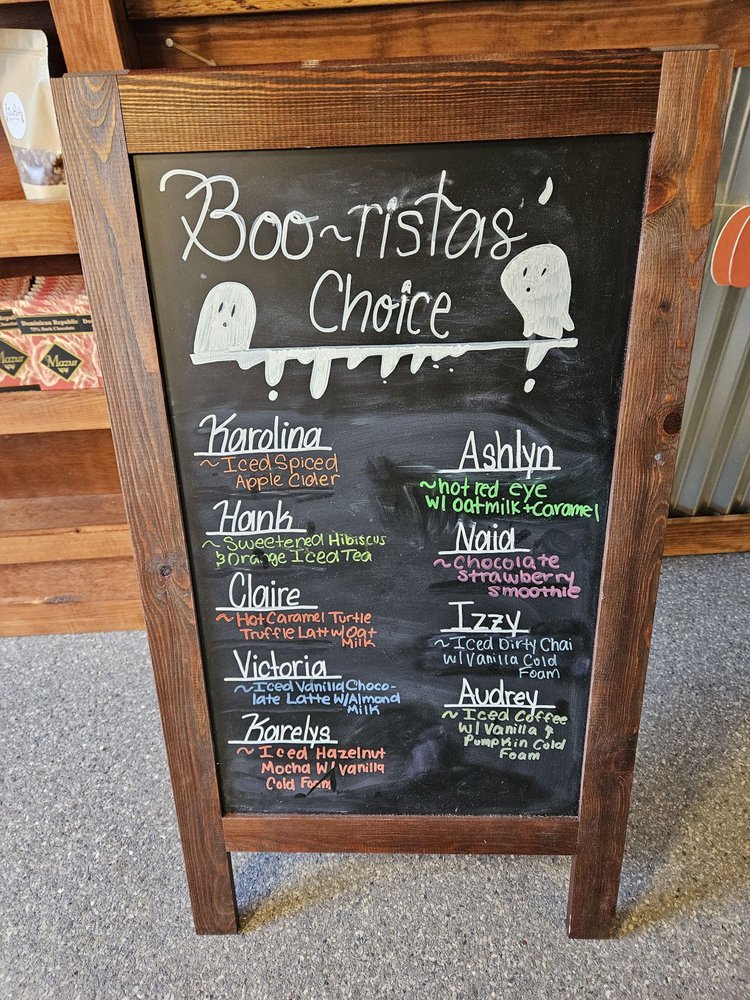 Boo~ristas'
Choice
Karolina
~ Iced Spiced
Apple Cider
Hank
~ Sweetened Hibiscus
& Orange Iced Tea
Claire
~ Hot Caramel Turtle
Truffle Latt w/ Oat
Milk
Victoria
~ Iced Vanilla Choco-
late Latte w/ Almond
Milk
Karelys
~ Iced Hazelnut
Mocha w/ Vanilla
Cold Foam
Ashlyn
~ hot red eye
w/ oatmilk + caramel
Naia
~ Chocolate
strawberry
smoothie
Izzy
~ Iced Dirty Chai
w/ Vanilla Cold
Foam
Audrey
~ Iced Coffee
w/ Vanilla &
Pumpkin Cold
Foam
Dominican Republic
72% Dark Chocolate
Mazur